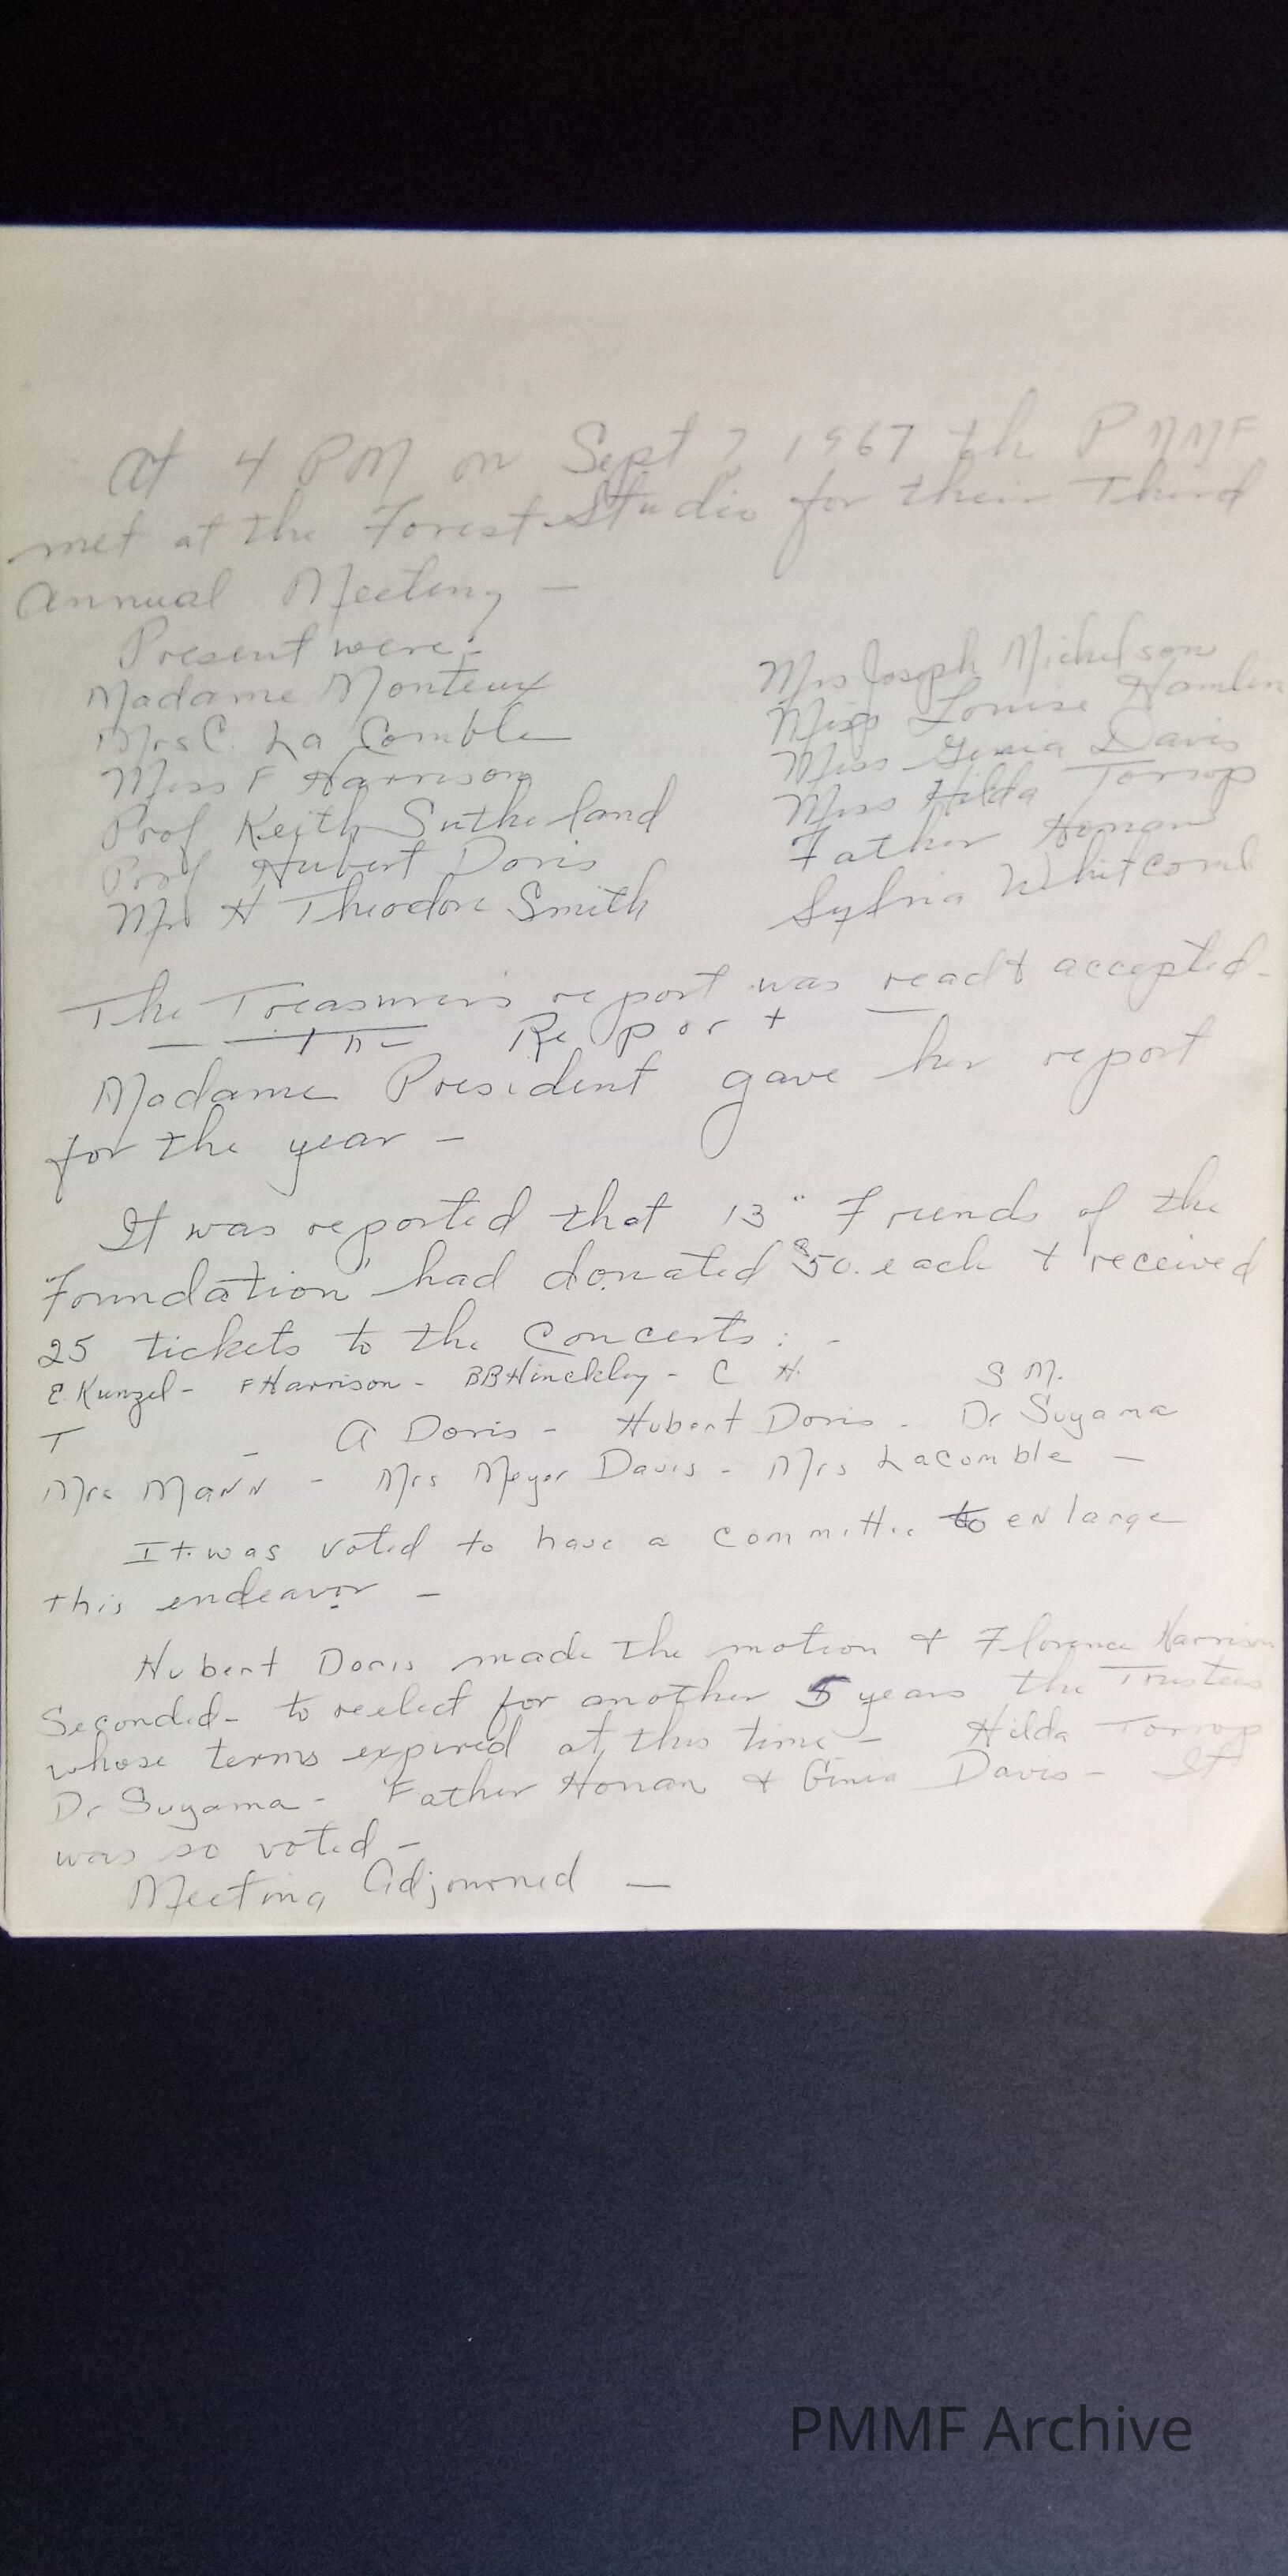 At 4 PM on Sept 7 1967 the PMMF
met at the Forest Studio for their Third
Annual Meeting -
Present were:-
Madame Monteux
Mrs C. La Comble
Miss F Harrison
Prof Keith Sutherland
Prof Hubert Doris
Mr H Theodore Smith
Mrs Joseph Michelson
Miss Louise Hamlin
Miss Genia Davis
Miss Hilda Torrop
Father Honan
Sylvia Whitcomb
The Treasurer's report was read & accepted -
Report
Madame President gave her report
for the year -
It was reported that 13 "Friends of the
Foundation" had donated $50. each & received
25 tickets to the Concerts: -
E. Kunzel - F Harrison - BB Hinckley - C H. S M.
T - A Doris - Hubert Doris - Dr Suyama
Mrs Mann - Mrs Meyer Davis - Mrs Lacomble -
It was voted to have a committee to enlarge
this endeavor -
Hubert Doris made the motion & Florence Harrison
Seconded - to reelect for another 5 years the Trustees
whose terms expired at this time - Hilda Torrop
Dr Suyama - Father Honan & Genia Davis - It
was so voted -
Meeting Adjourned -
PMMF Archive